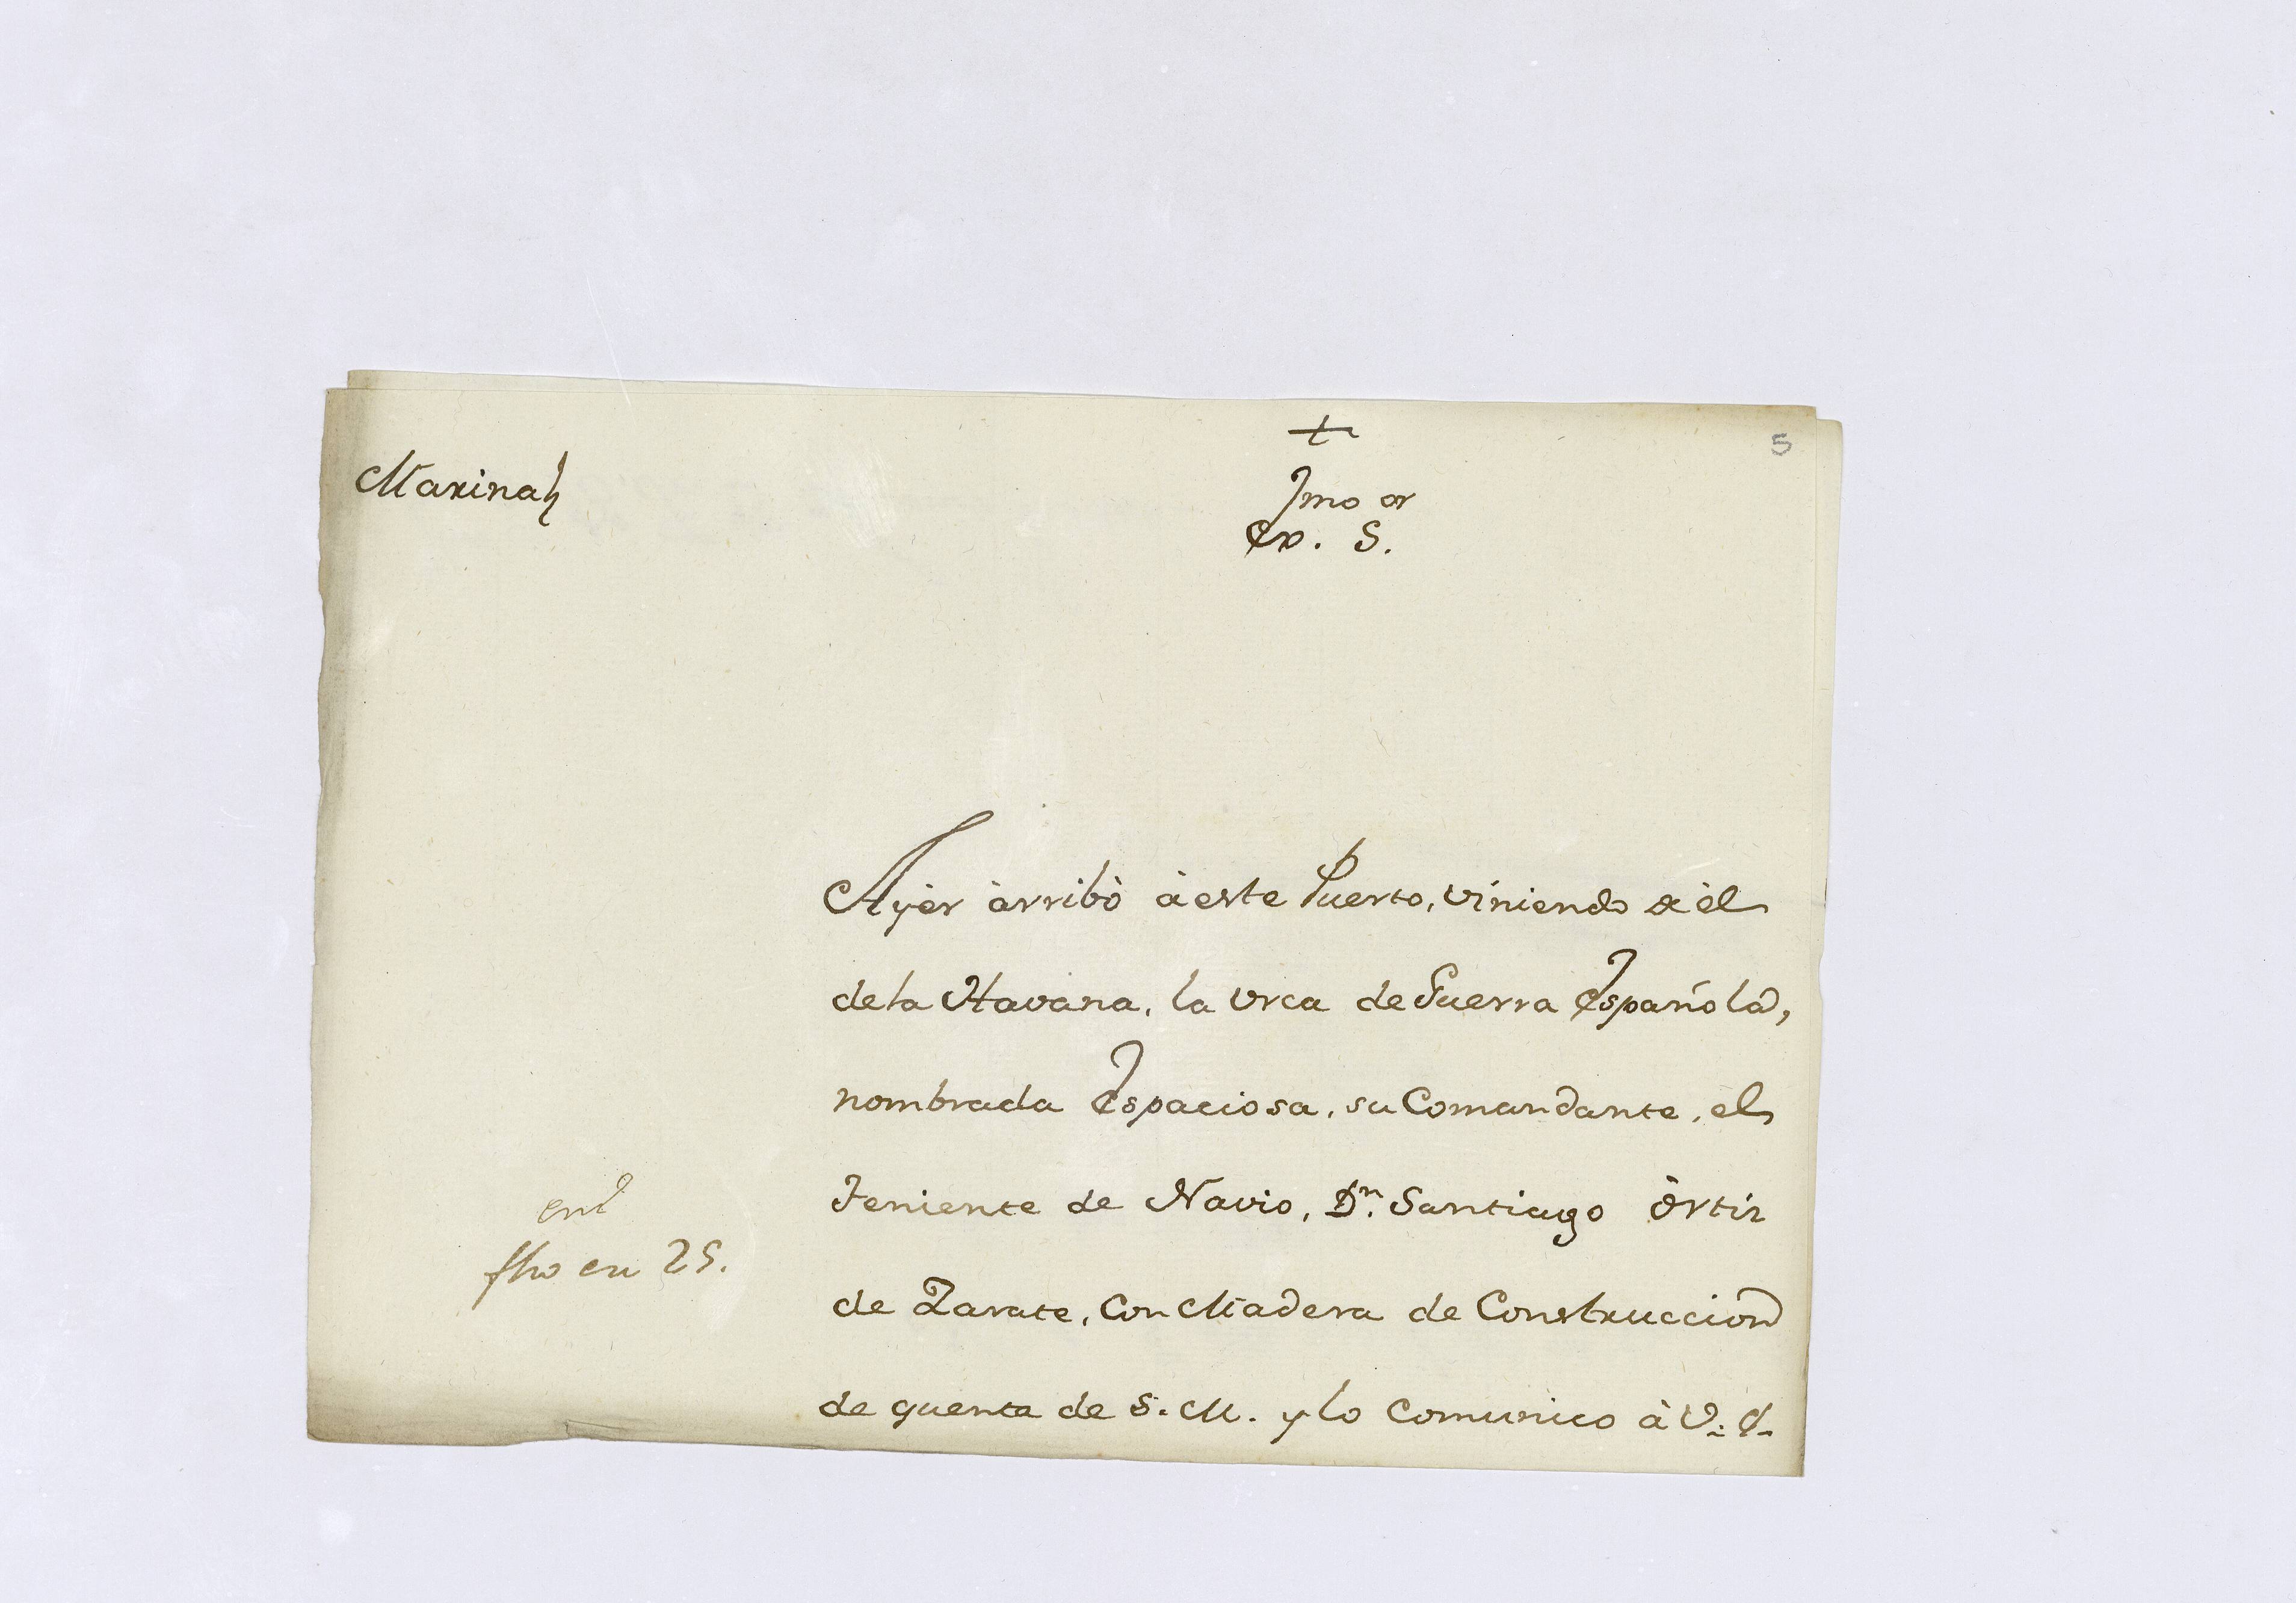 +
5
Marina
Exmo. Sor.
Ayèr àrribò à este Puerto, viniendo de èl
de la Havana, la Vrca de Guerra Española,
nombrada Espaciosa, su Comandante, el
Teniente de Navio, Dn. Santiago òrtiz
de Zarate, Con Madera de Construccion
de quenta de S. M. y lo Comunico à V. E.
fho en 25.